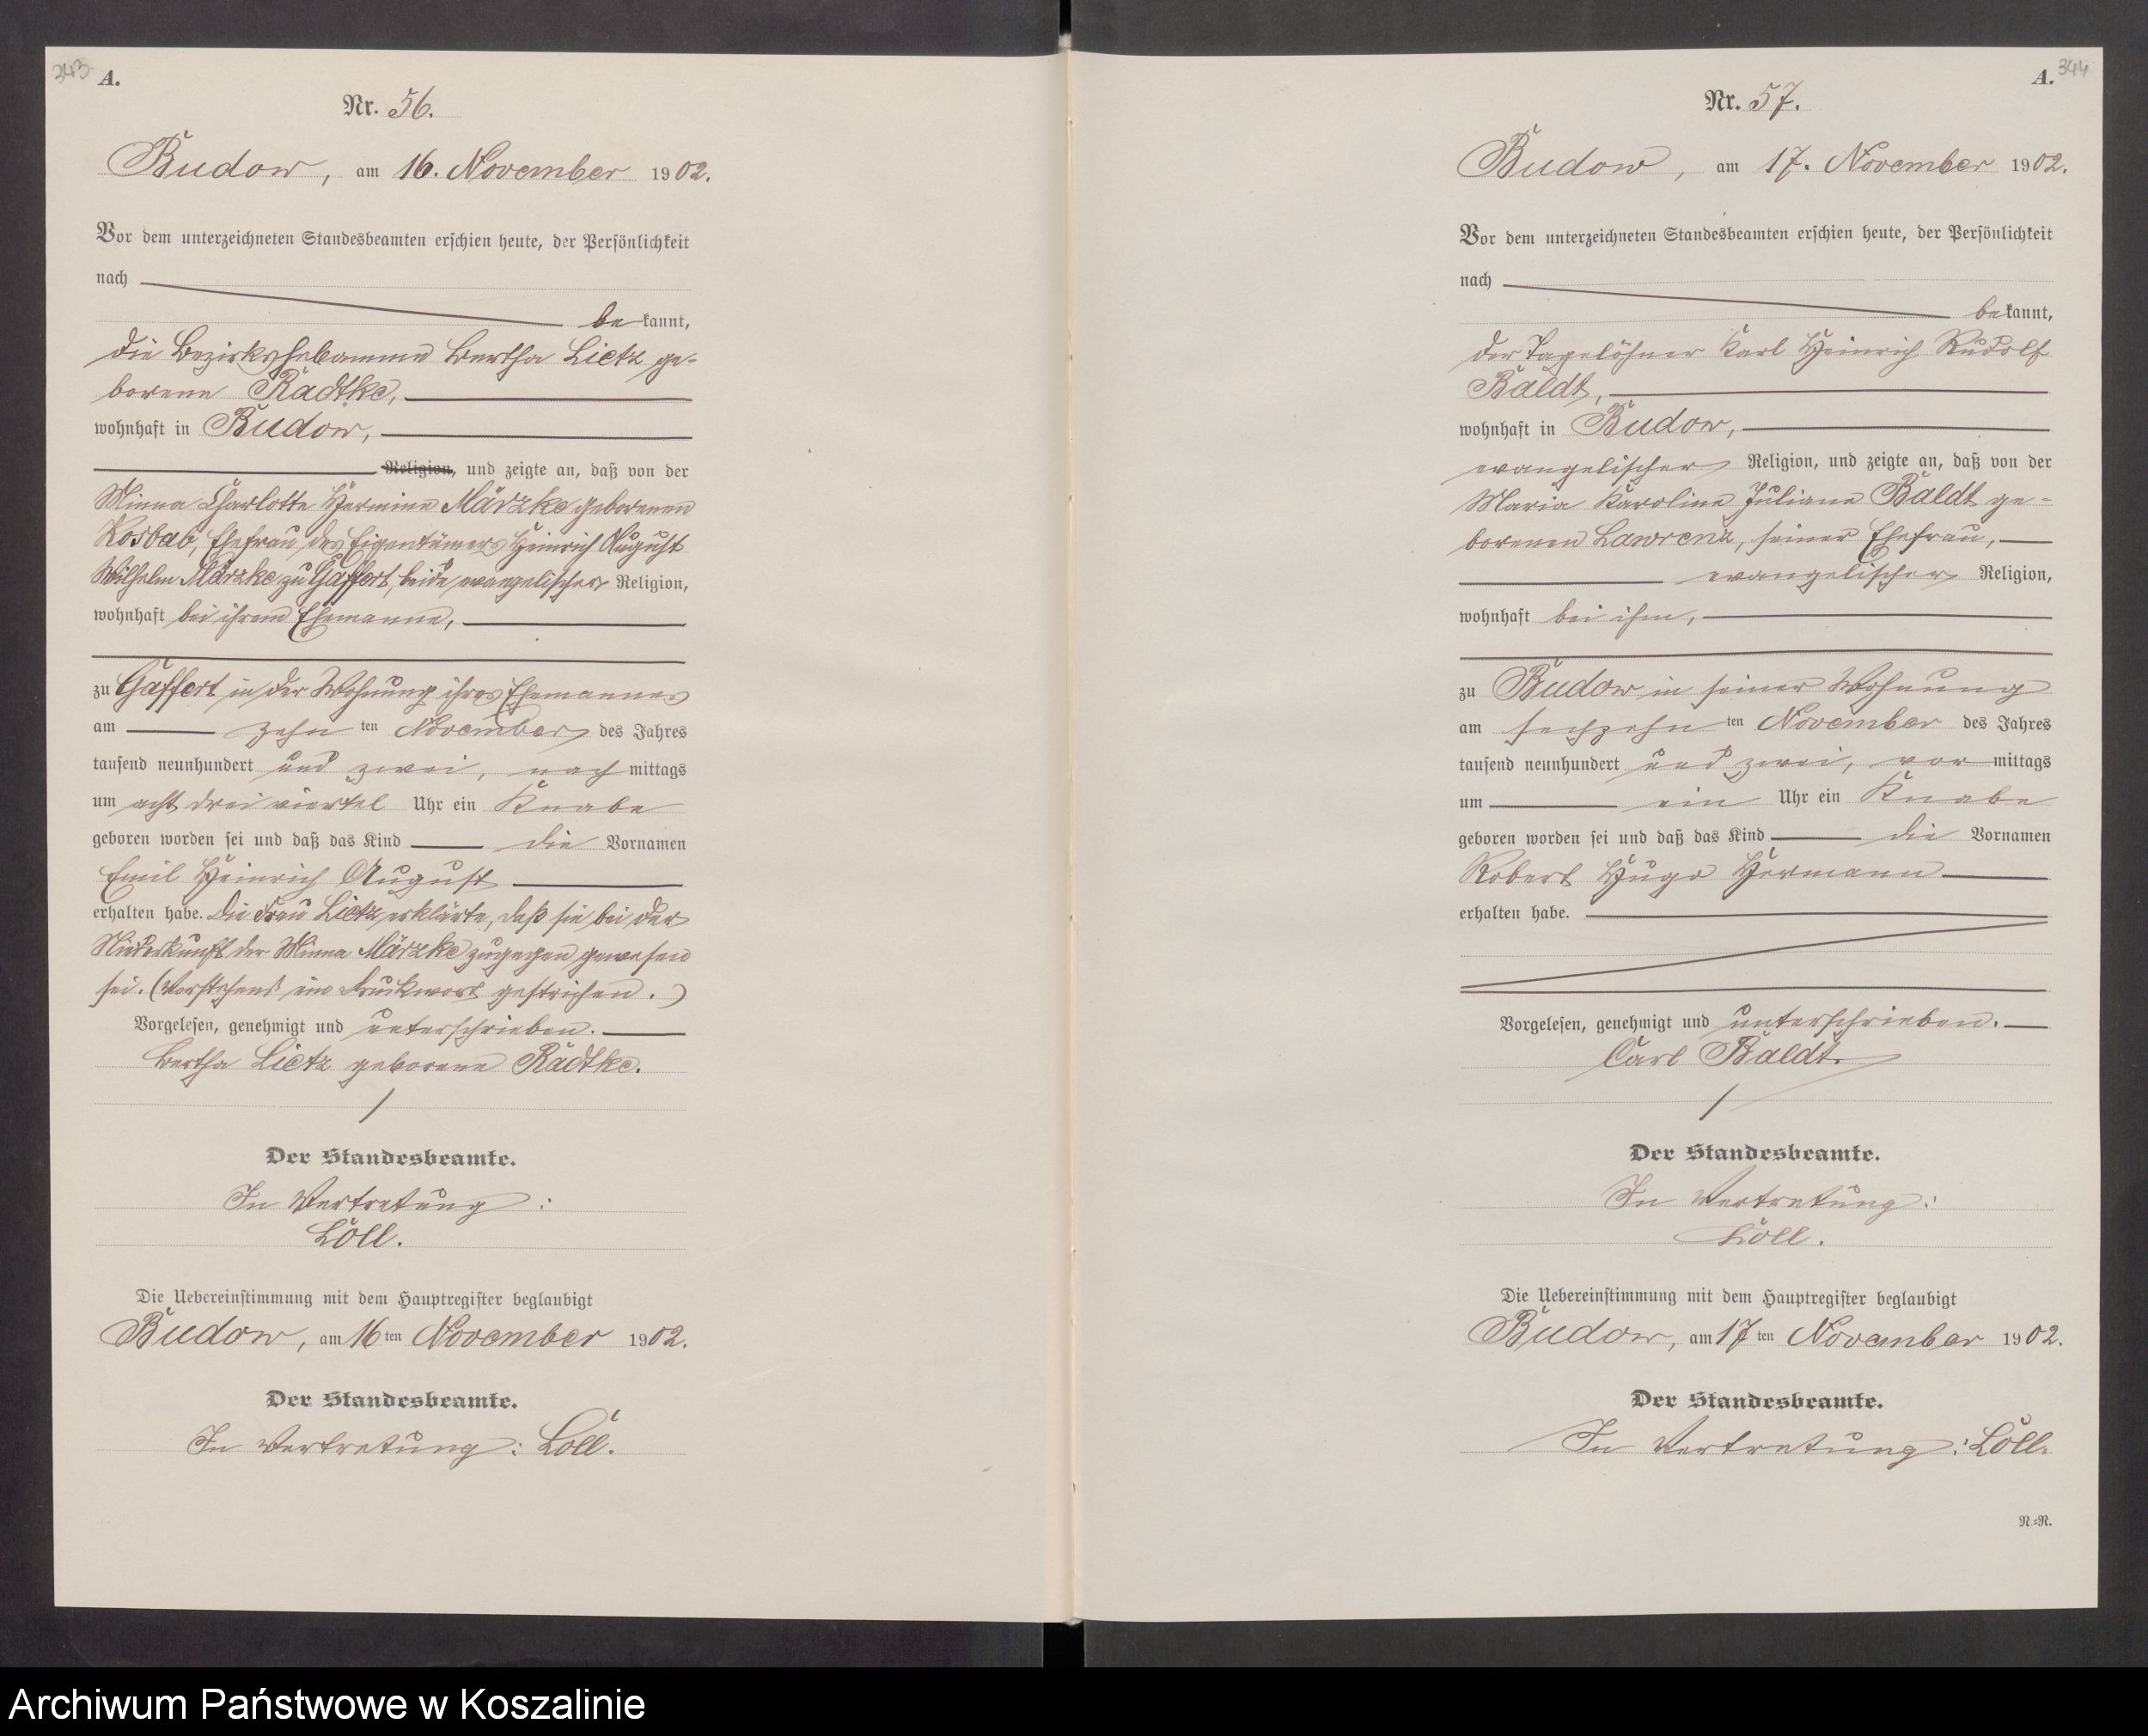 343
A.
Nr. 56.
Budow, am 16. November 1902.
Vor dem unterzeichneten Standesbeamten erschien heute, der Persönlichkeit
nach
bekannt,
die Bezirkshebamme Bertha Lietz ge-
borene Radtke,
wohnhaft in Budow,
Religion, und zeigte an, daß von der
Minna Charlotte Hermine Märzke geborenen
Kosbab, Ehefrau des Eigentümers Heinrich August
Wilhelm Märzke zu Gaffert, beide evangelischer Religion,
wohnhaft bei ihrem Ehemanne,
zu Gaffert in der Wohnung ihres Ehemannes
am zehn ten November des Jahres
tausend neunhundert und zwei, nach mittags
um acht drei viertel Uhr ein Knabe
geboren worden sei und daß das Kind die Vornamen
Emil Heinrich August
erhalten habe. Die Frau Lietz erklärte, daß sie bei der
Niederkunft der Minna Märzke zugegen gewesen
sei. (Vorstehend ein Druckwort gestrichen.)
Vorgelesen, genehmigt und unterschrieben.
Bertha Lietz geborene Radtke.
Der Standesbeamte.
In Vertretung:
Löll.
Die Uebereinstimmung mit dem Hauptregister beglaubigt
Budow, am 16 ten November 1902.
Der Standesbeamte.
In Vertretung: Löll.
344
A.
Nr. 57.
Budow, am 17. November 1902.
Vor dem unterzeichneten Standesbeamten erschien heute, der Persönlichkeit
nach
bekannt,
der Tagelöhner Karl Heinrich Rudolf
Baldt,
wohnhaft in Budow,
evangelischer Religion, und zeigte an, daß von der
Maria Karoline Juliane Baldt ge-
borenen Lawrenz, seiner Ehefrau,
evangelischer Religion,
wohnhaft bei ihm,
zu Budow in seiner Wohnung
am sechzehn ten November des Jahres
tausend neunhundert und zwei, vor mittags
um ein Uhr ein Knabe
geboren worden sei und daß das Kind die Vornamen
Robert Hugo Hermann
erhalten habe.
Vorgelesen, genehmigt und unterschrieben.
Carl Baldt.
Der Standesbeamte.
In Vertretung:
Löll.
Die Uebereinstimmung mit dem Hauptregister beglaubigt
Budow, am 17 ten November 1902.
Der Standesbeamte.
In Vertretung: Löll.
N.=R.
Archiwum Państwowe w Koszalinie